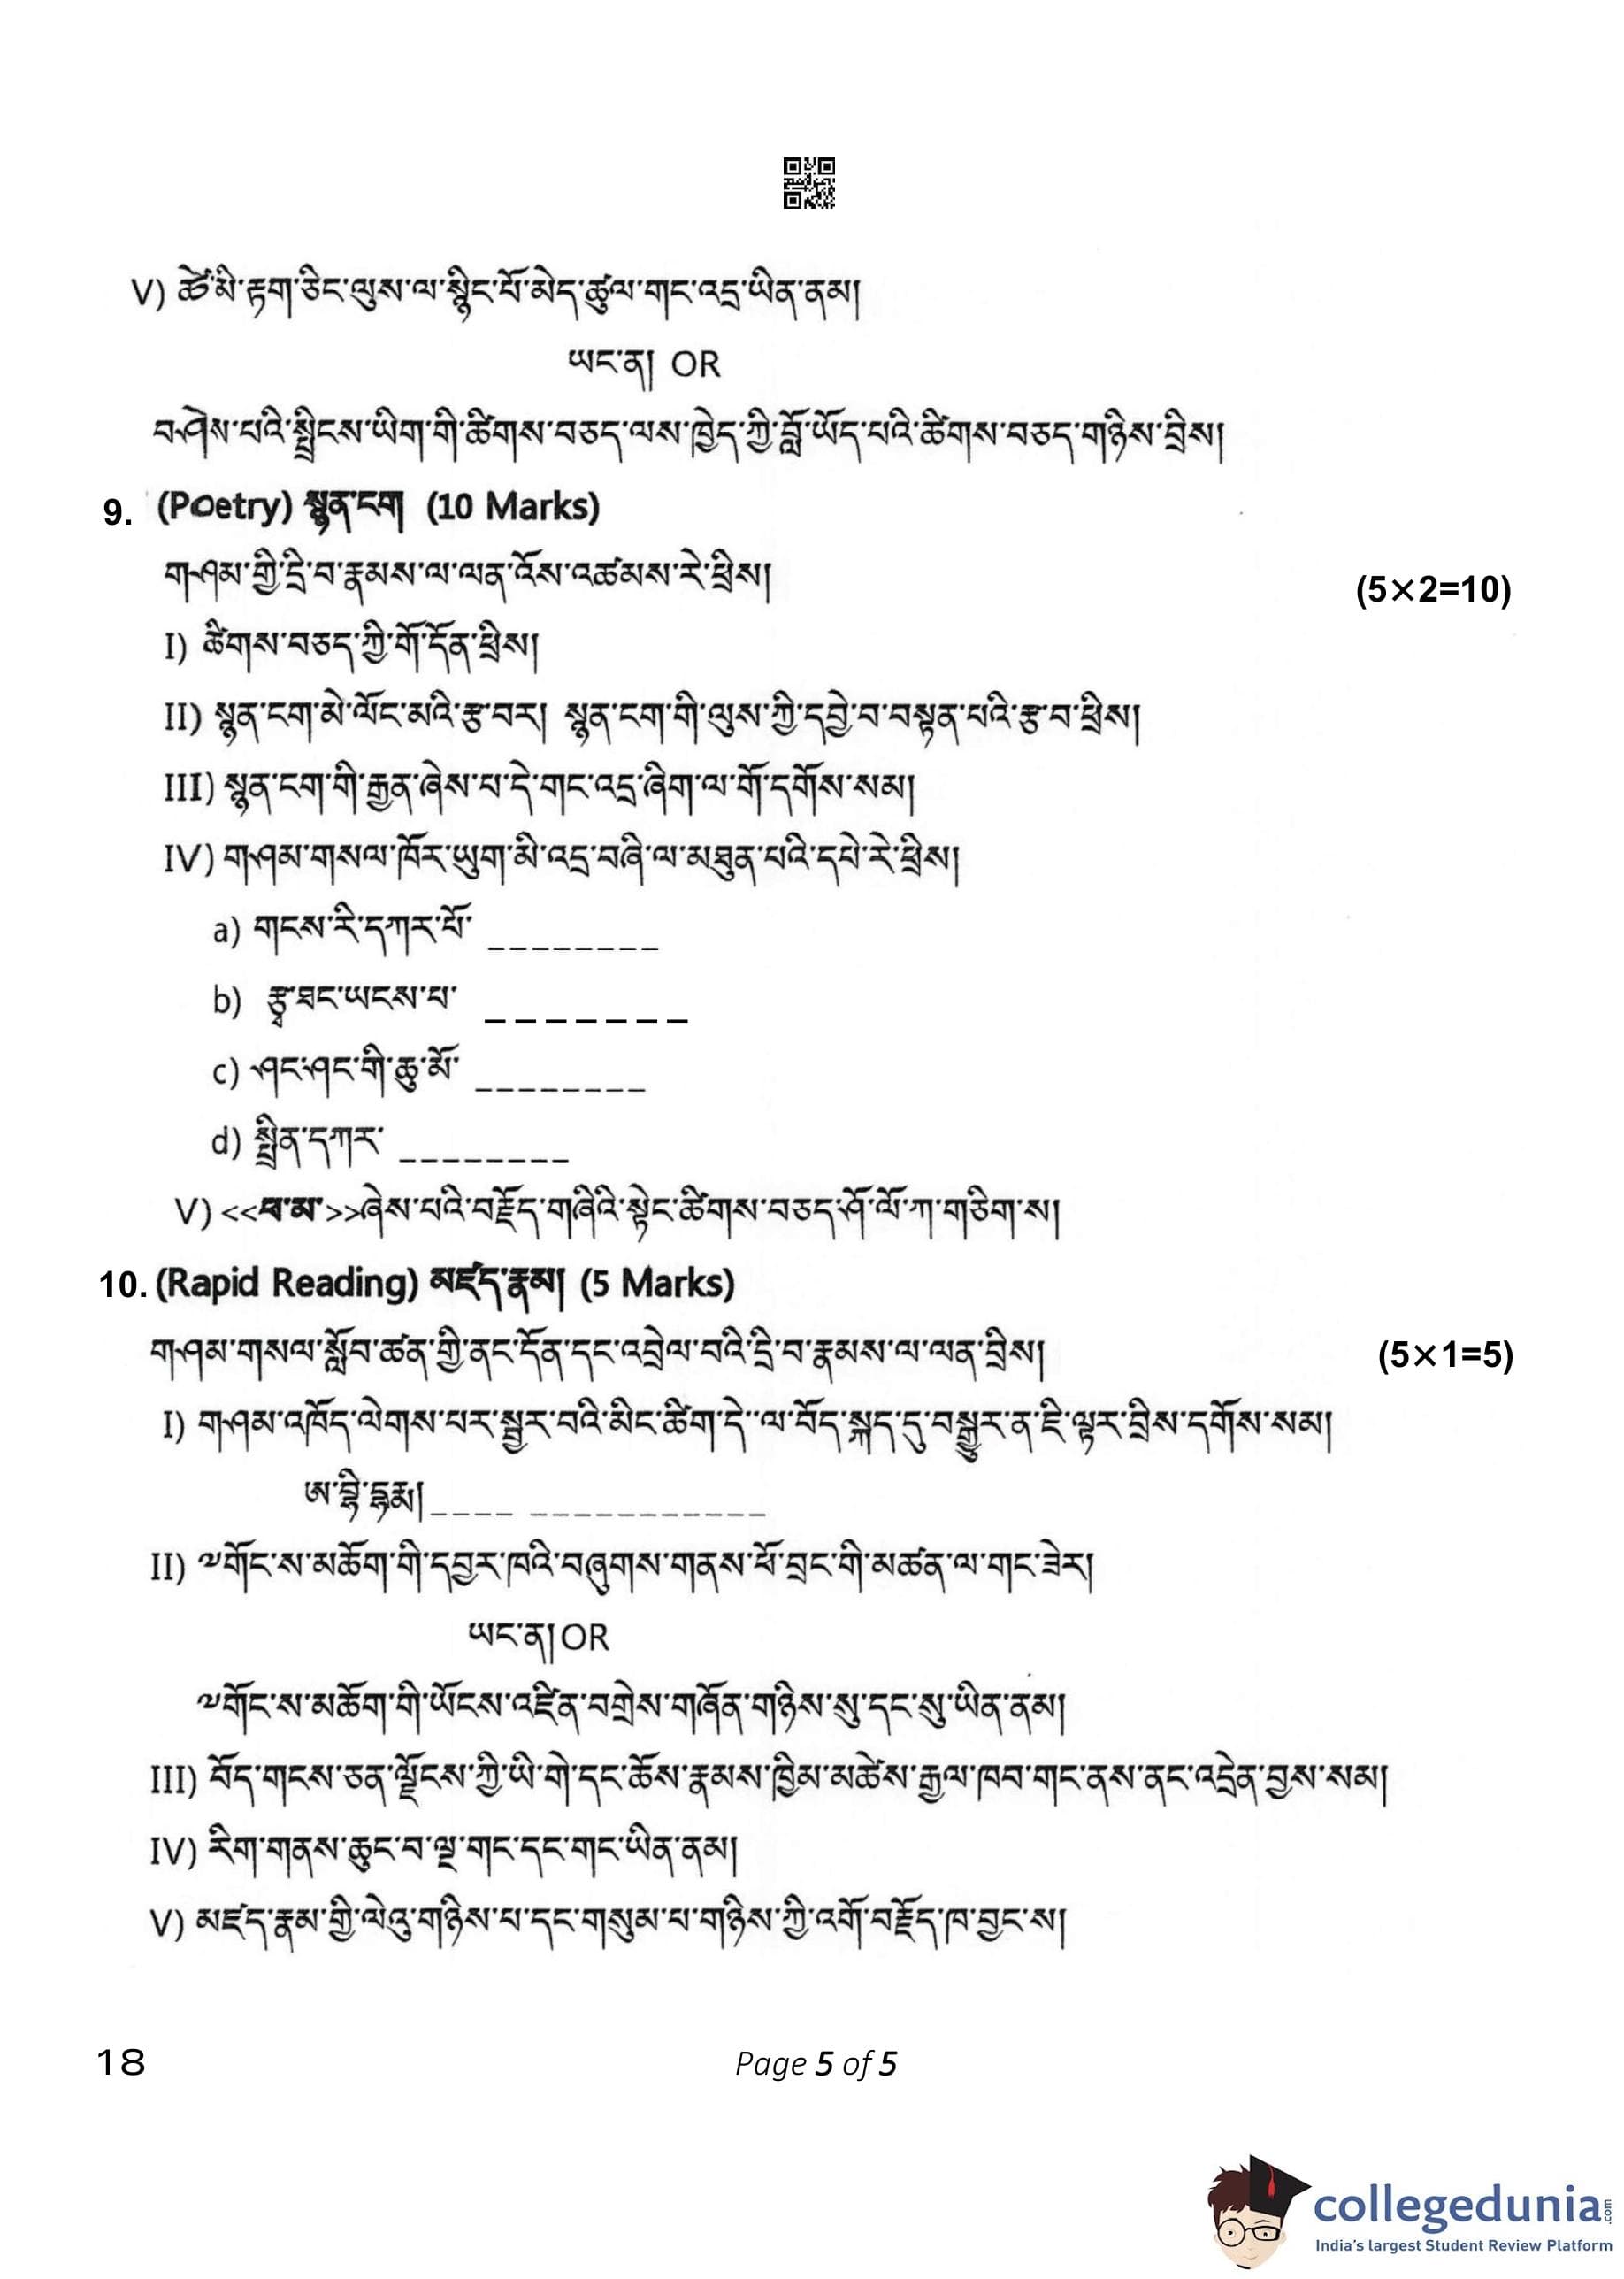 V) ཚེ་མི་རྟག་ཅིང་ལུས་ལ་སྙིང་པོ་མེད་ཚུལ་གང་འདྲ་ཡིན་ནམ།
ཡང་ན། OR
བཤེས་པའི་སྤྲིངས་ཡིག་གི་ཚིགས་བཅད་ལས་ཁྱེད་ཀྱི་བློ་ཡོད་པའི་ཚིགས་བཅད་གཉིས་བྲིས།
9. (Poetry) སྙན་ངག (10 Marks)
གཤམ་གྱི་དྲི་བ་རྣམས་ལ་ལན་འོས་འཚམས་རེ་བྲིས། (5×2=10)
I) ཚིགས་བཅད་ཀྱི་གོ་དོན་བྲིས།
II) སྙན་ངག་མེ་ལོང་མའི་རྩ་བར། སྙན་ངག་གི་ལུས་ཀྱི་དབྱེ་བ་བསྟན་པའི་རྩ་བ་བྲིས།
III) སྙན་ངག་གི་རྒྱན་ཞེས་པ་དེ་གང་འདྲ་ཞིག་ལ་གོ་དགོས་སམ།
IV) གཤམ་གསལ་ཁོར་ཡུག་མི་འདྲ་བཞི་ལ་མཐུན་པའི་དཔེ་རེ་བྲིས།
a) གངས་རི་དཀར་པོ་ ________
b) རྩྭ་ཐང་ཡངས་པ་ _______
c) ཤང་ཤང་གི་ཆུ་མོ་ ________
d) སྤྲིན་དཀར་ ________
V) <<ཕ་མ་>>ཞེས་པའི་བརྗོད་གཞིའི་སྟེང་ཚིགས་བཅད་ཤོ་ལོ་ཀ་གཅིག་ས།
10. (Rapid Reading) མཛད་རྣམ། (5 Marks)
གཤམ་གསལ་སློབ་ཚན་གྱི་ནང་དོན་དང་འབྲེལ་བའི་དྲི་བ་རྣམས་ལ་ལན་བྲིས། (5×1=5)
I) གཤམ་འཁོད་ལེགས་པར་སྦྱར་བའི་མིང་ཚིག་དེ་ལ་བོད་སྐད་དུ་བསྒྱུར་ན་ཇི་ལྟར་བྲིས་དགོས་སམ།
ཨ་བྷི་དྷརྨ།____ ___________
II) ༧གོང་ས་མཆོག་གི་དབྱར་ཁའི་བཞུགས་གནས་ཕོ་བྲང་གི་མཚན་ལ་གང་ཟེར།
ཡང་ན།OR
༧གོང་ས་མཆོག་གི་ཡོངས་འཛིན་བགྲེས་གཞོན་གཉིས་སུ་དང་སུ་ཡིན་ནམ།
III) བོད་གངས་ཅན་ལྗོངས་ཀྱི་ཡི་གེ་དང་ཆོས་རྣམས་ཁྱིམ་མཚེས་རྒྱལ་ཁབ་གང་ནས་ནང་འདྲེན་བྱས་སམ།
IV) རིག་གནས་ཆུང་བ་ལྔ་གང་དང་གང་ཡིན་ནམ།
V) མཛད་རྣམ་གྱི་ལེའུ་གཉིས་པ་དང་གསུམ་པ་གཉིས་ཀྱི་འགོ་བརྗོད་ཁ་བྱང་ས།
18
Page 5 of 5
collegedunia.com
India's largest Student Review Platform